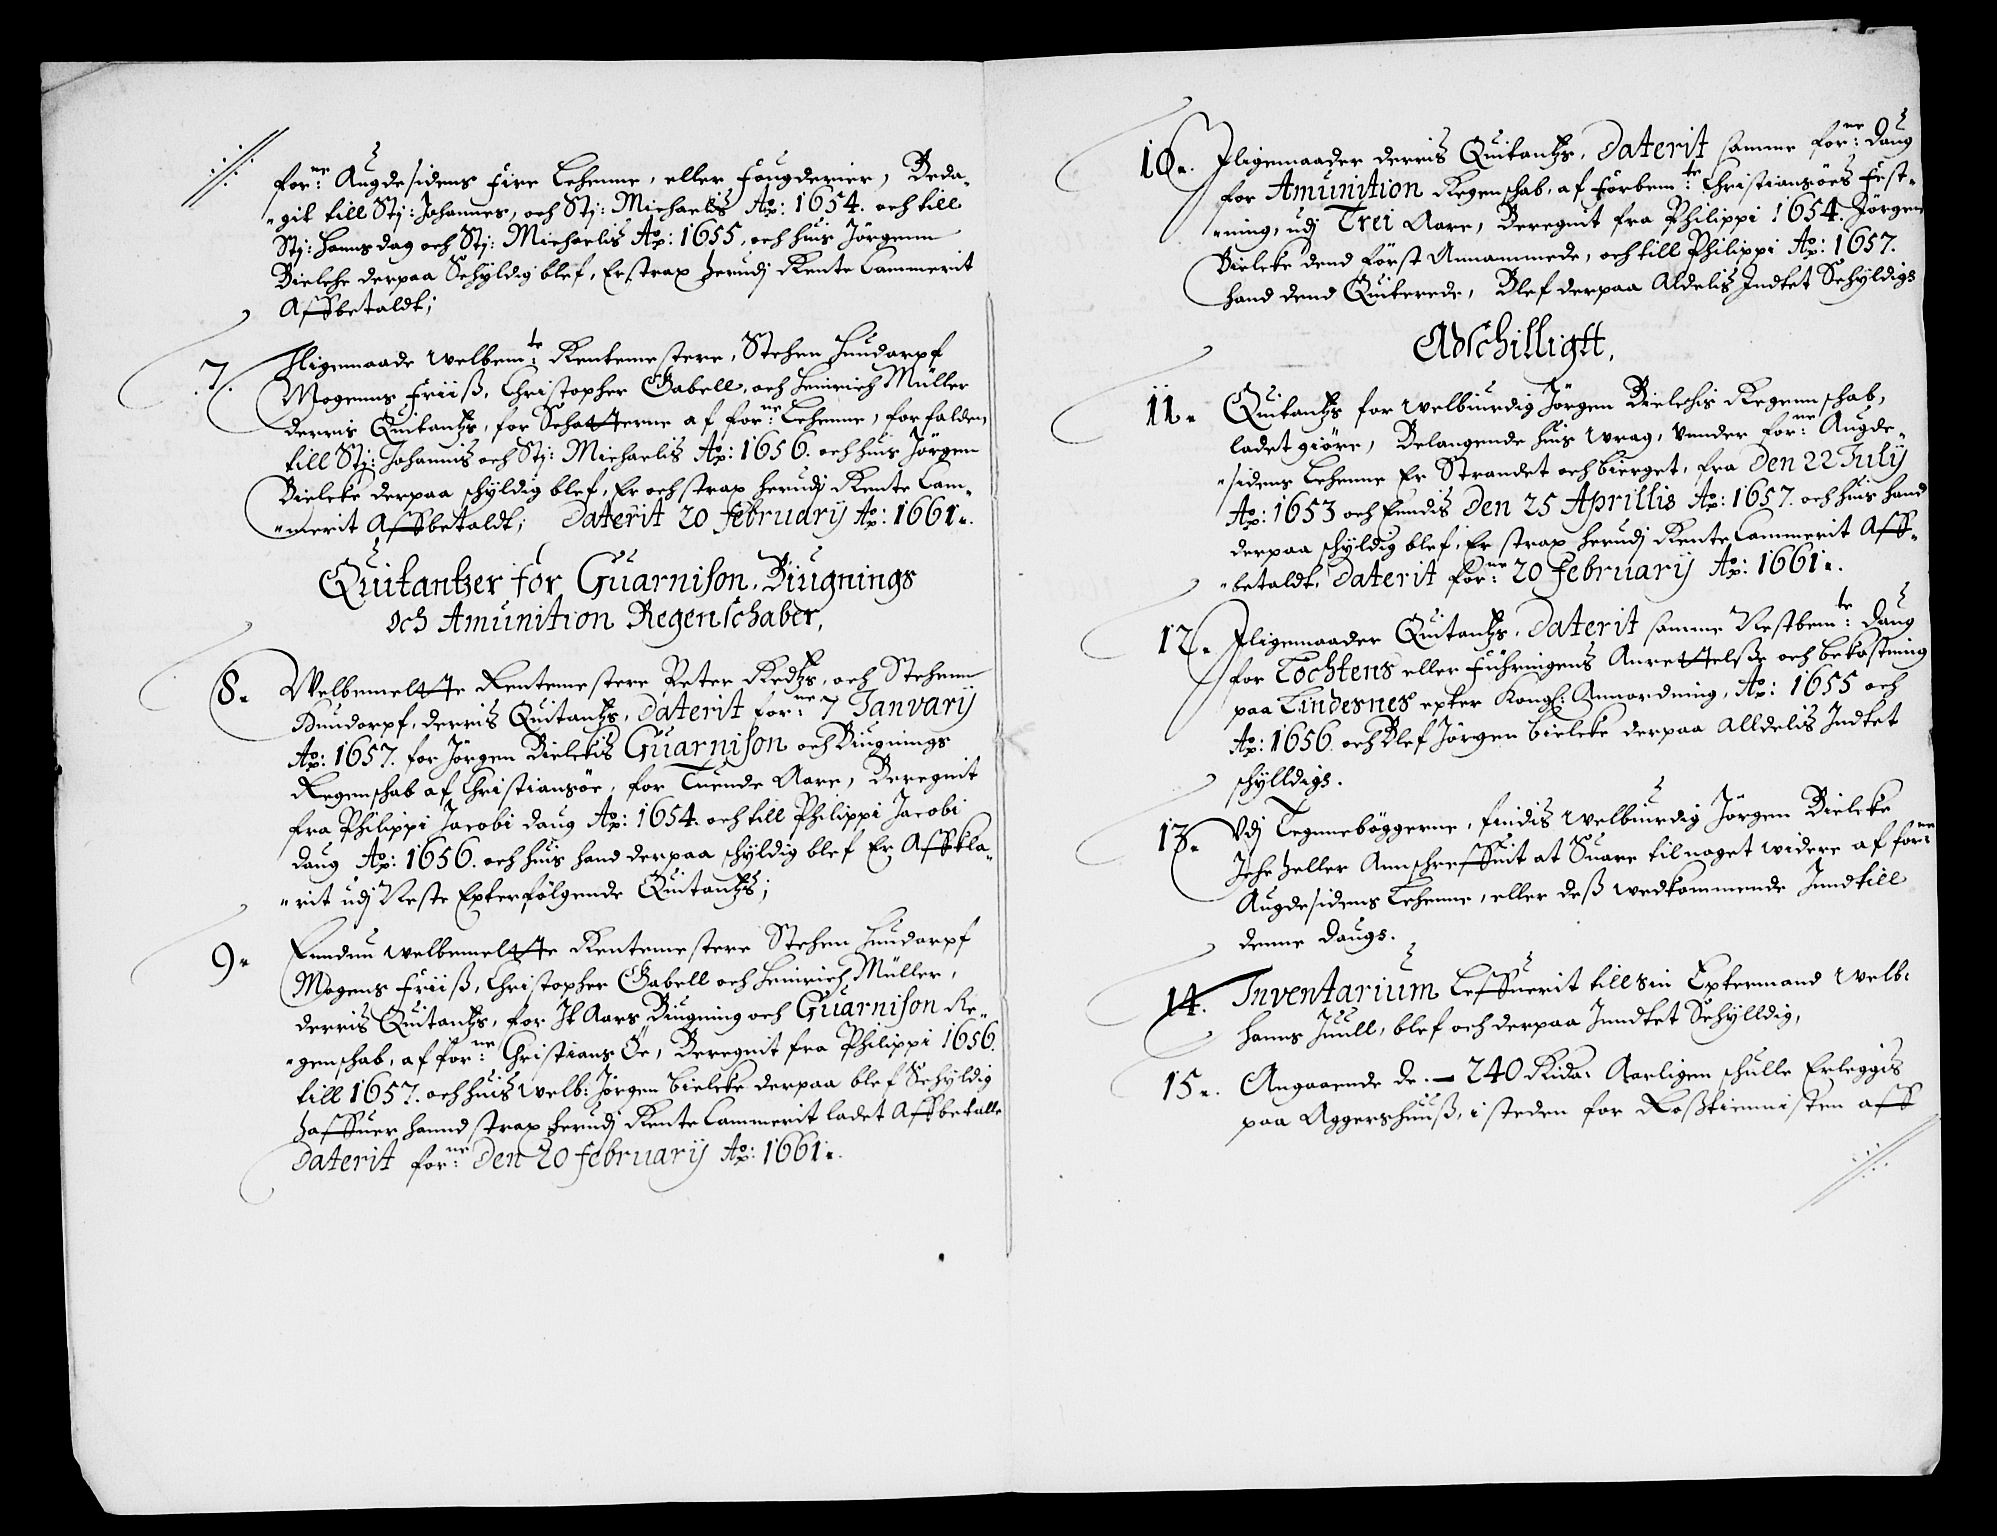 forne: Augdesidens Fire Lehenne, eller Fougderier, Beda-
"git till Stj: Johannes, och Stj: Michaelis Ao: 1654. och till
Stj: Hannsdag och Stj: Michaelis Ao: 1655, och huis Jörgenn
Bielche derpaa Schyldig blef, Er strax herudj Rente Cammerit
Affbetaldt;
7. Jligemaade welbemte: Rentemestere, Stehen Hundorpf
Mogenns Friiß, Christopher Gabell, och Heinrich Müller
derris Quitantzs, for Schatterne af forne: Lehenne, forfalden,
till Stj: Johannis och Stj: Michaelis Ao: 1656. och huis Jörgen
Bielcke derpaa schyldig blef, Er och strax herudj Rente Cam-
"merit Affbetaldt; Daterit 20 february Ao: 1661.
Quitantzer for Guarnison, Biugnings
och Amunition Regenschaber,
8. Welbemeltte Rentemestere Peter Redtzs, och Stehenn
Hundorpf, derris Quitantzs, Daterit forne: 7 Janvarij
Ao: 1657. for Jörgen Bielckis Guarnison och Biugnings
Regenschab af Christiansöe, for Tuende Aare, Beregnit
fra Philippi Jacobi daug Ao: 1654. och till Philippi Jacobi
daug Ao: 1656. och huis hand derpaa schyldig blef Er Affkla-
"rit udj Neste Epterfølgende Quitantzs;
9. Enndnu welbemeltte Rentemestere Stehen Hundorpf
Mogens Friiß, Christopher Gabell och Heinrich Müller,
derris Quitantzs, for It Aars Biugning och Guarnison Re-
"genschab, af forne: Christians Öe, Beregnit fra Philippi 1656.
till 1657. och huis Welb: Jörgen Bielcke derpaa blef Schyldig
haffuer hannd strax herudj Rente Cammerit ladet Affbetalle
Daterit forne: Den 20 february Ao: 1661.
10. Jligemaader derris Quitantzs, Daterit samme forne: Daug
for Amunition Regenschab, af Förbemte: Christiansöes Fest-
"ning, udj Trei Aare, Beregnit fra Philippi 1654. Jörgen
Bielcke dend Först Annammede, och till Philippi Ao: 1657.
hand dend Quiterede, Blef derpaa Aldelis Indtet Schyldigs
Adschilligtt,
11. Quitantzs for welbiurdig Jörgen Bielchis Regennschab,
ladet giöre, Belangende huis Wrag, Vunder forne: Augde-
"sidens Lehenne Er Strandet och bierget, fra Den 22 Julij
Ao: 1653 och Enndis Den 25 Aprillis Ao: 1657. och huis hand
derpaa schyldig blef, Er strax herudj Rente Cammerit Aff-
"betaldt, Daterit forne: 20 february Ao: 1661.
12. Jligemaader Quitantzs, Daterit samme Nestbemte: Daug
for Löchtens eller Führingens Anrettelsse och bekostning
paa Lindesnes epter Kongl: Annordning, Ao: 1655 och
Ao: 1656. och Blef Jörgen Bielcke derpaa alldelis Indtet
schylldigs.
13. Vdj Tegnnebøggerne, findis welbiurdig Jörgen Bielcke
Iche heller Annschreffuit at Suare til noget widere af forne:
Augdesidens Lehenne, eller deß wedkommende Inndtill
denne Daugs.
14. Inventarium Leffuerit till sin Eptermand Welb:
Hanns Juull, blef och derpaa Inndtet Schylldig,
15. Angaaende de. - 240 Rida: Aarligen schulle Erleggis
paa Aggershuuß, i steden for Roßtiennisten aff